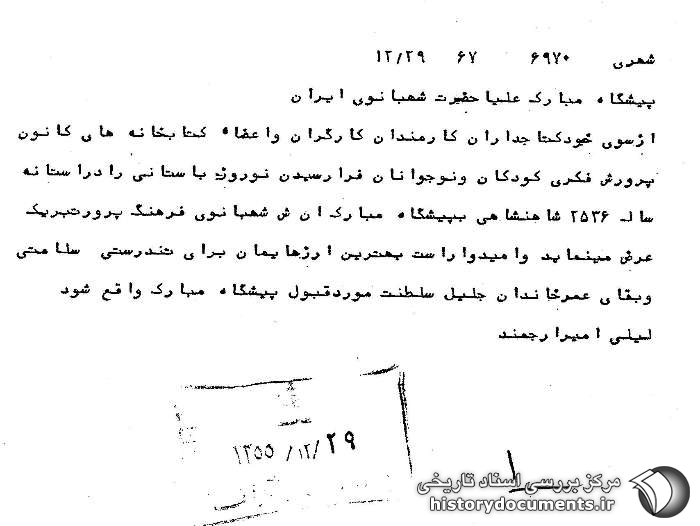 شهری ۶۹۷۰ ۶۷ ۱۲/۲۹
پیشگاه مبارک علیاحضرت شهبانوی ایران
ازسوی خودکتابداران کارمندان کارگران واعضاء کتابخانه های کانون
پرورش فکری کودکان ونوجوانان فرارسیدن نوروز باستانی رادراستانه
سال ۲۵۳۶ شاهنشاهی بپیشگاه مبارک ان ش شهبانوی فرهنگ پرورتبریک
عرش مینماید وامیدواراست بهترین ارزهایمان برای تندرستی سلامتی
وبقای عمرخاندان جلیل سلطنت موردقبول پیشگاه مبارک واقع شود
لیلی امیرارجمند
۱۳۵۵/۱۲/۲۹
مرکز بررسی اسناد تاریخی
historydocuments.ir